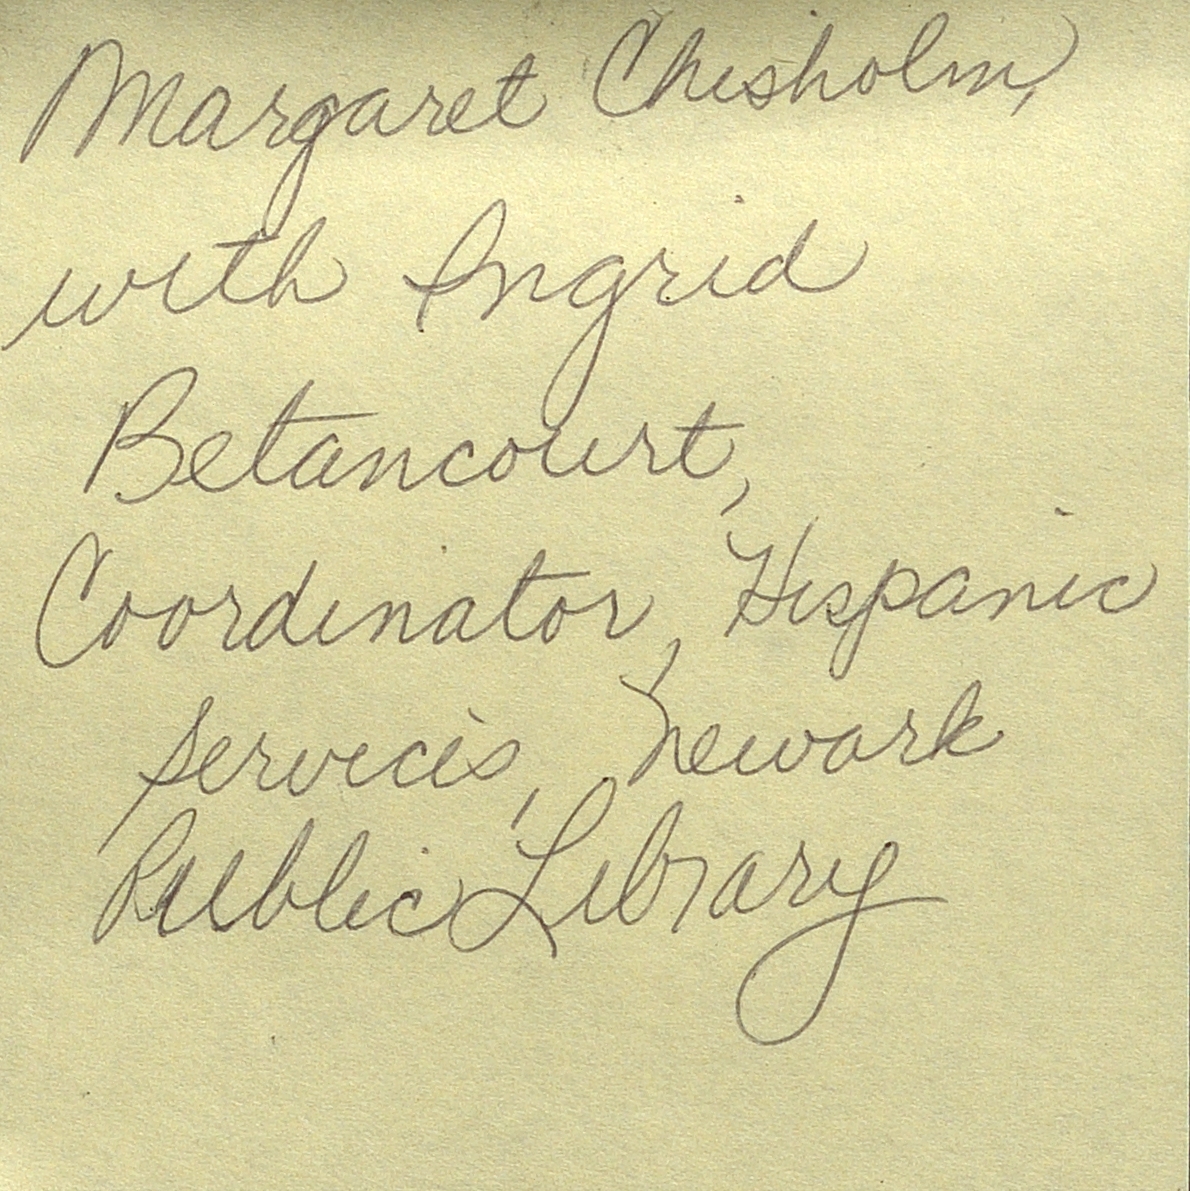 Margaret Chisholm,
with Ingrid
Betancourt,
Coordinator, Hispanic
Services, Newark
Public Library